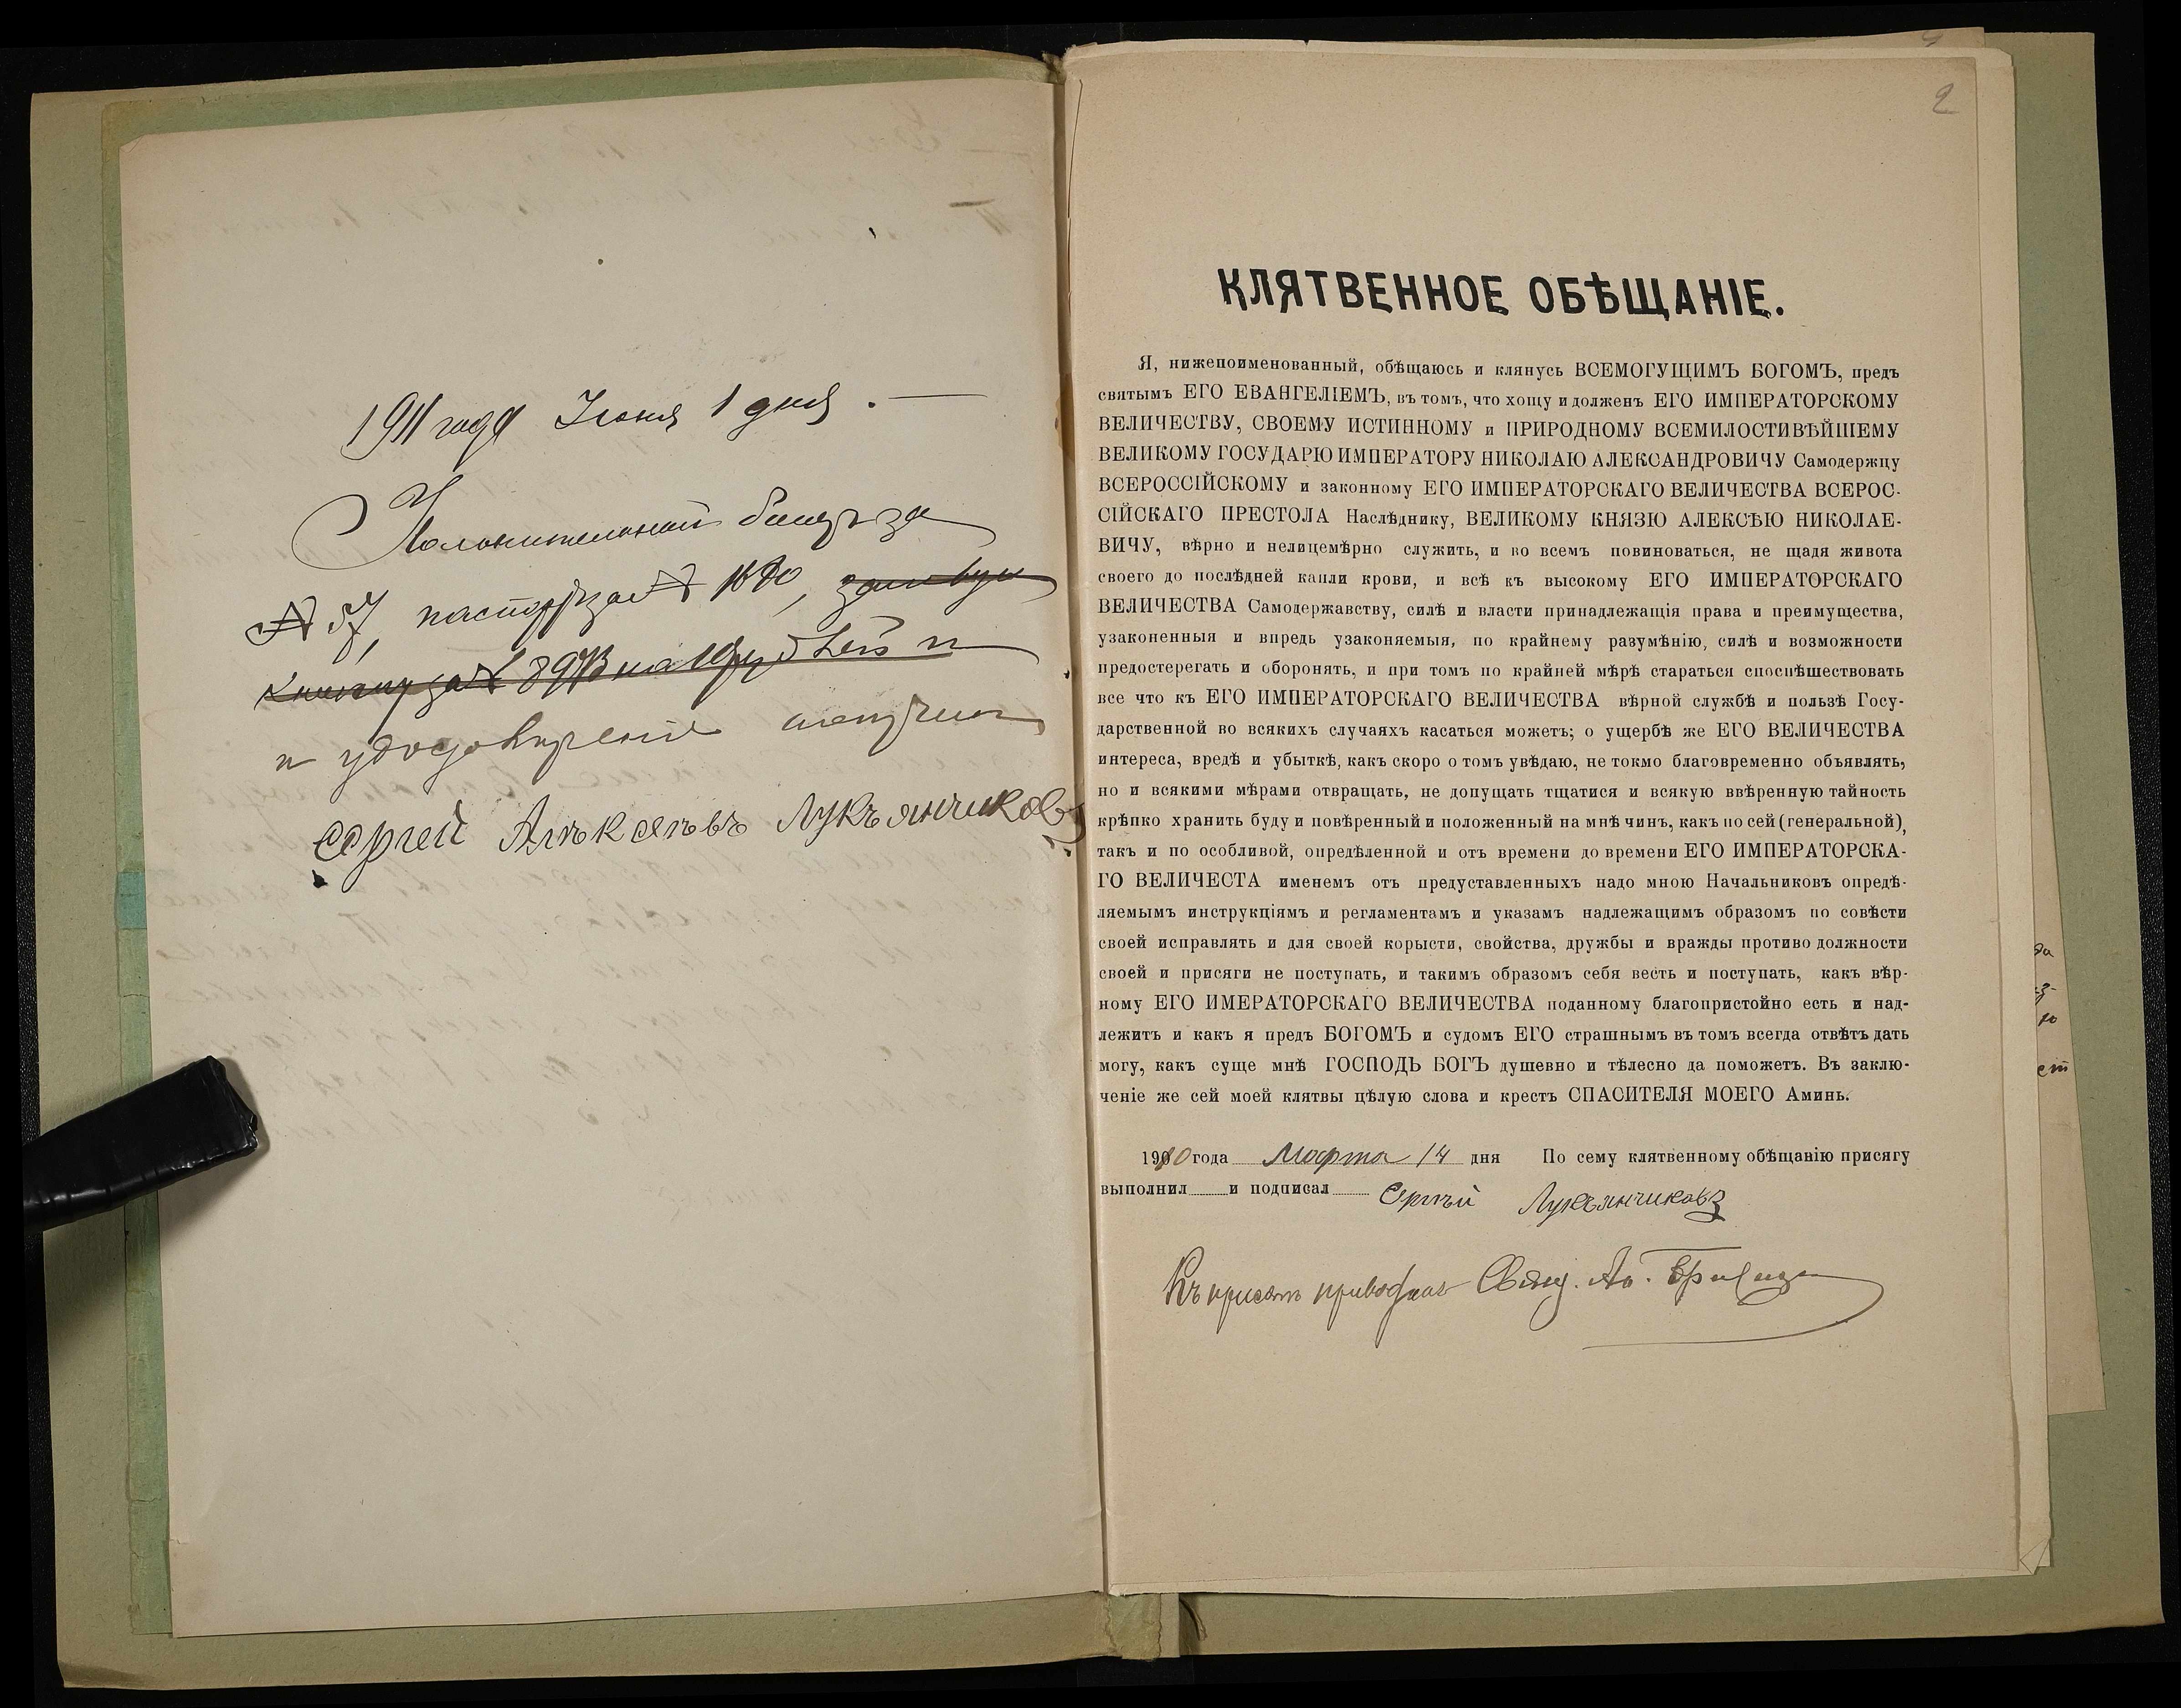 1911 года Іюня 1 дня.
Исполнительный билетъ за
№ 57, паспортъ за №
книжку за № 8973 на рублей и
и удостовереніе получилъ
Сергей Алѣксеевъ Лукъянчиковъ
2
КЛЯТВЕННОЕ ОБѢЩАНІЕ.
Я, нижепоименованный, обѣщаюсь и клянусь ВСЕМОГУЩИМЪ БОГОМЪ, предъ
святымъ ЕГО ЕВАНГЕЛІЕМЪ, въ томъ, что хощу и долженъ ЕГО ИМПЕРАТОРСКОМУ
ВЕЛИЧЕСТВУ, СВОЕМУ ИСТИННОМУ и ПРИРОДНОМУ ВСЕМИЛОСТИВѢЙШЕМУ
ВЕЛИКОМУ ГОСУДАРЮ ИМПЕРАТОРУ НИКОЛАЮ АЛЕКСАНДРОВИЧУ Самодержцу
ВСЕРОССІЙСКОМУ и законному ЕГО ИМПЕРАТОРСКАГО ВЕЛИЧЕСТВА ВСЕРОС-
СІЙСКАГО ПРЕСТОЛА Наслѣднику, ВЕЛИКОМУ КНЯЗЮ АЛЕКСѢЮ НИКОЛАЕ-
ВИЧУ, вѣрно и нелицемѣрно служить, и во всемъ повиноваться, не щадя живота
своего до послѣдней капли крови, и всѣ къ высокому ЕГО ИМПЕРАТОРСКАГО
ВЕЛИЧЕСТВА Самодержавству, силѣ и власти принадлежащія права и преимущества,
узаконенныя и впредь узаконяемыя, по крайнему разумѣнію, силѣ и возможности
предостерегать и оборонять, и при томъ по крайней мѣрѣ стараться споспѣшествовать
все что къ ЕГО ИМПЕРАТОРСКАГО ВЕЛИЧЕСТВА вѣрной службѣ и пользѣ Госу-
дарственной во всякихъ случаяхъ касаться можетъ; о ущербѣ же ЕГО ВЕЛИЧЕСТВА
интереса, вредѣ и убыткѣ, какъ скоро о томъ увѣдаю, не токмо благовременно объявлять,
но и всякими мѣрами отвращать, не допущать тщатися и всякую ввѣренную тайность
крѣпко хранить буду и повѣренный и положенный на мнѣ чинъ, какъ по сей (генеральной),
такъ и по особливой, опредѣленной и отъ времени до времени ЕГО ИМПЕРАТОРСКА-
ГО ВЕЛИЧЕСТА именемъ отъ предуставленныхъ надо мною Начальниковъ опредѣ-
ляемымъ инструкціямъ и регламентамъ и указамъ надлежащимъ образомъ по совѣсти
своей исправлять и для своей корысти, свойства, дружбы и вражды противо должности
своей и присяги не поступать, и такимъ образомъ себя весть и поступать, какъ вѣр-
ному ЕГО ИМЕРАТОРСКАГО ВЕЛИЧЕСТВА поданному благопристойно есть и над-
лежитъ и какъ я предъ БОГОМЪ и судомъ ЕГО страшнымъ въ томъ всегда отвѣтъ дать
могу, какъ суще мнѣ ГОСПОДЬ БОГЪ душевно и тѣлесно да поможетъ. Въ заклю-
ченіе же сей моей клятвы цѣлую слова и крестъ СПАСИТЕЛЯ МОЕГО Аминь.
1910 года Марта 14 дня По сему клятвенному обѣщанію присягу
выполнил и подписал Сергѣй Лукъянчиковъ
Къ присягѣ приводилъ Свящ.